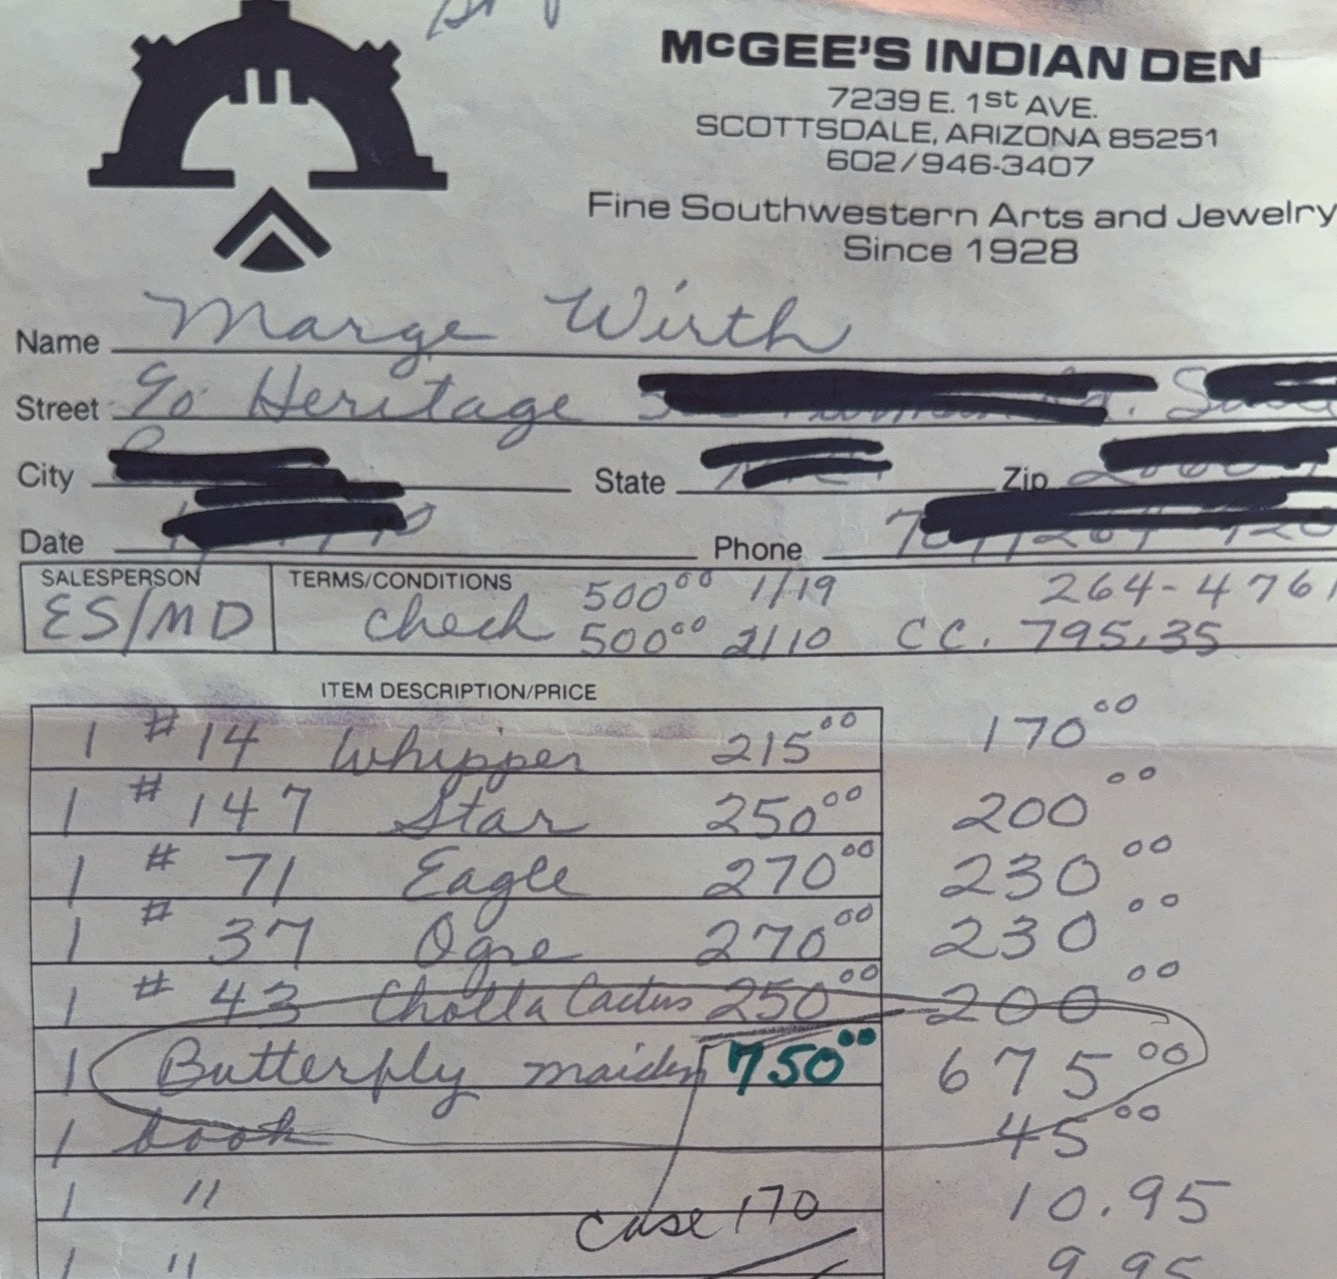 McGEE'S INDIAN DEN
7239 E. 1st AVE.
SCOTTSDALE, ARIZONA 85251
602/946-3407
Fine Southwestern Arts and Jewelry
Since 1928
Name Marge Wirth
Street % Heritage
City State Zip
Date Phone
SALESPERSON TERMS/CONDITIONS 500.00 1/19 264-4761
ES/MD check 500.00 2/10 CC. 795.35
ITEM DESCRIPTION/PRICE
1 # 14 Whipper 215.00 170.00
1 # 147 Star 250.00 200.00
1 # 71 Eagle 270.00 230.00
1 # 37 Ogre 270.00 230.00
1 # 43 Cholla Cactus 250.00 200.00
1 Butterfly maiden 750.00 675.00
1 book 45.00
1 " 10.95
case 170
1 " 9.95